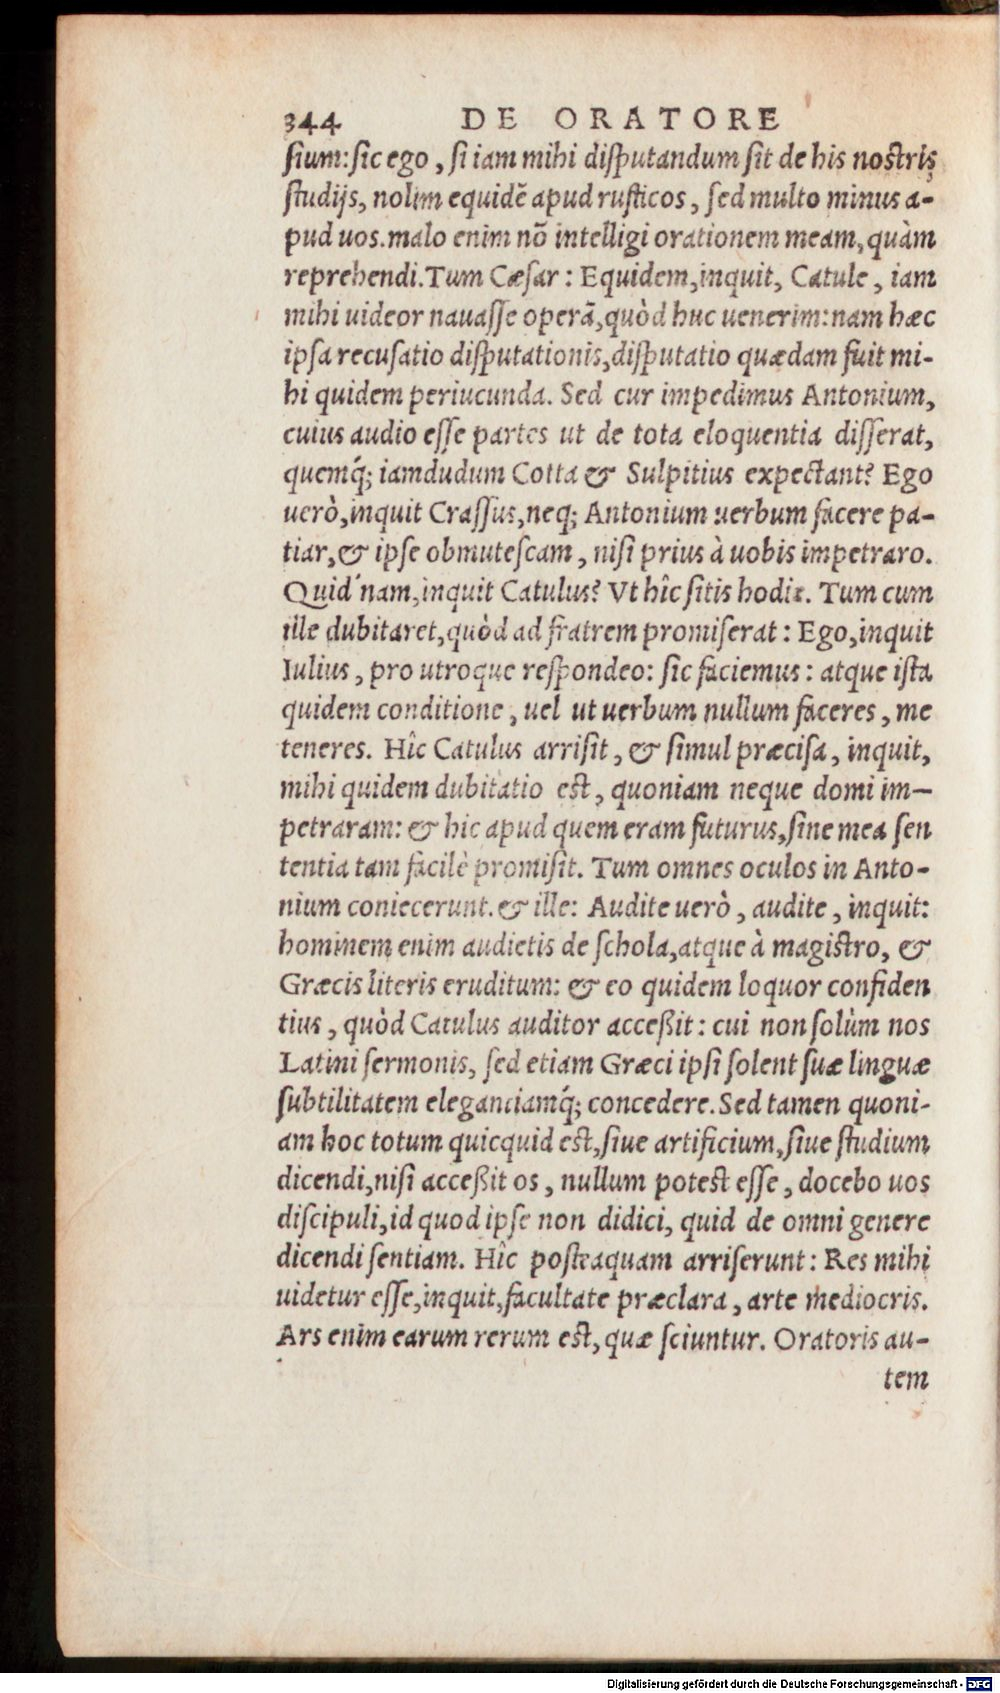 344 DE ORATORE
sium: sic ego, si iam mihi disputandum sit de his nostris
studijs, nolim equidẽ apud rusticos, sed multo minus a-
pud uos. malo enim nõ intelligi orationem meam, quàm
reprehendi. Tum Cæsar: Equidem, inquit, Catule, iam
mihi uideor nauasse operã, quòd huc uenerim: nam hæc
ipsa recusatio disputationis, disputatio quædam fuit mi-
hi quidem periucunda. Sed cur impedimus Antonium,
cuius audio esse partes ut de tota eloquentia disserat,
quemq́; iamdudum Cotta & Sulpitius expectant? Ego
uerò, inquit Crassus, neq; Antonium uerbum facere pa-
tiar, & ipse obmutescam, nisi prius à uobis impetraro.
Quid'nam, inquit Catulus? Vt hîc sitis hodie. Tum cum
ille dubitaret, quòd ad fratrem promiserat: Ego, inquit
Iulius, pro utroque respondeo: sic faciemus: atque ista
quidem conditione, uel ut uerbum nullum faceres, me
teneres. Hîc Catulus arrisit, & simul præcisa, inquit,
mihi quidem dubitatio est, quoniam neque domi im-
petraram: & hic apud quem eram futurus, sine mea sen
tentia tam facilè promisit. Tum omnes oculos in Anto-
nium coniecerunt. & ille: Audite uerò, audite, inquit:
hominem enim audietis de schola, atque à magistro, &
Græcis literis eruditum: & eo quidem loquor confiden
tius, quòd Catulus auditor acceßit: cui non solùm nos
Latini sermonis, sed etiam Græci ipsi solent suæ linguæ
subtilitatem elegantiamq́; concedere. Sed tamen quoni-
am hoc totum quicquid est, siue artificium, siue studium
dicendi, nisi acceßit os, nullum potest esse, docebo uos
discipuli, id quod ipse non didici, quid de omni genere
dicendi sentiam. Hîc posteaquam arriserunt: Res mihi
uidetur esse, inquit, facultate præclara, arte mediocris.
Ars enim earum rerum est, quæ sciuntur. Oratoris au-
tem
Digitalisierung gefördert durch die Deutsche Forschungsgemeinschaft - DFG